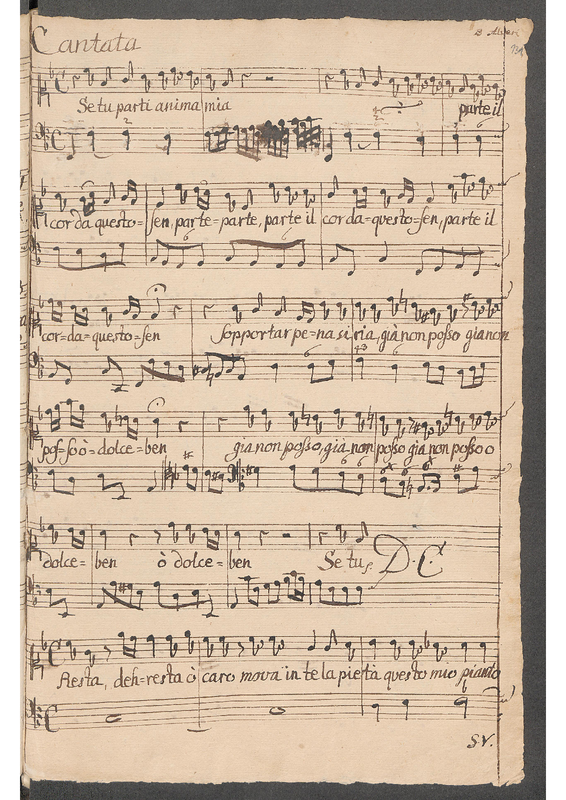 Cantata
134
Se tu parti anima mia parte il
cor da questo = sen, parte = parte, parte il cor da = questo = sen, parte il
cor = da = questo = sen Sopportar pe = na si ria, già non posso già non
pos = so ò = dolce = ben già non posso, già non posso già non posso o
dolce = ben ò dolce = ben Se tu D. C.
Resta, deh = resta ò caro mova in te la pietà questo mio pianto
S. V.